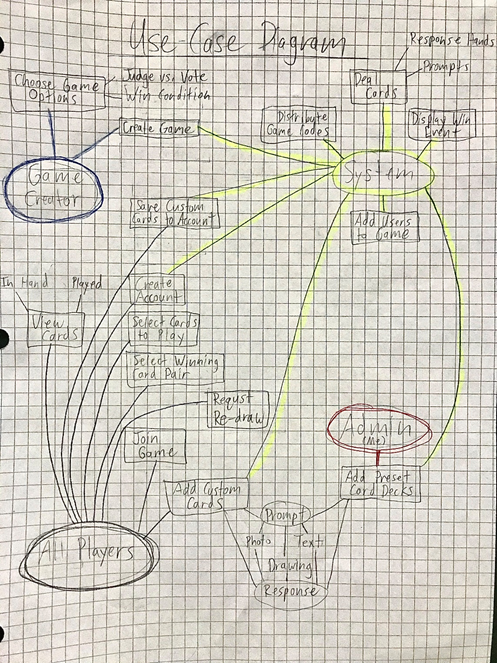 Use-Case Diagram
Response Hands
Prompts
Deal
Cards
Choose Game
Options
Judge vs. Vote
Win Condition
Create Game
Distribute
Game Codes
Display Win
Event
Game
Creator
System
Save Custom
Cards to Account
Add Users
to Game
In Hand
Played
View
Cards
Create
Account
Select Cards
to Play
Select Winning
Card Pair
Requst
Re-draw
Join
Game
Admin
(Me)
Add Custom
Cards
Add Preset
Card Decks
All Players
Prompt
Photo
Text
Drawing
Response